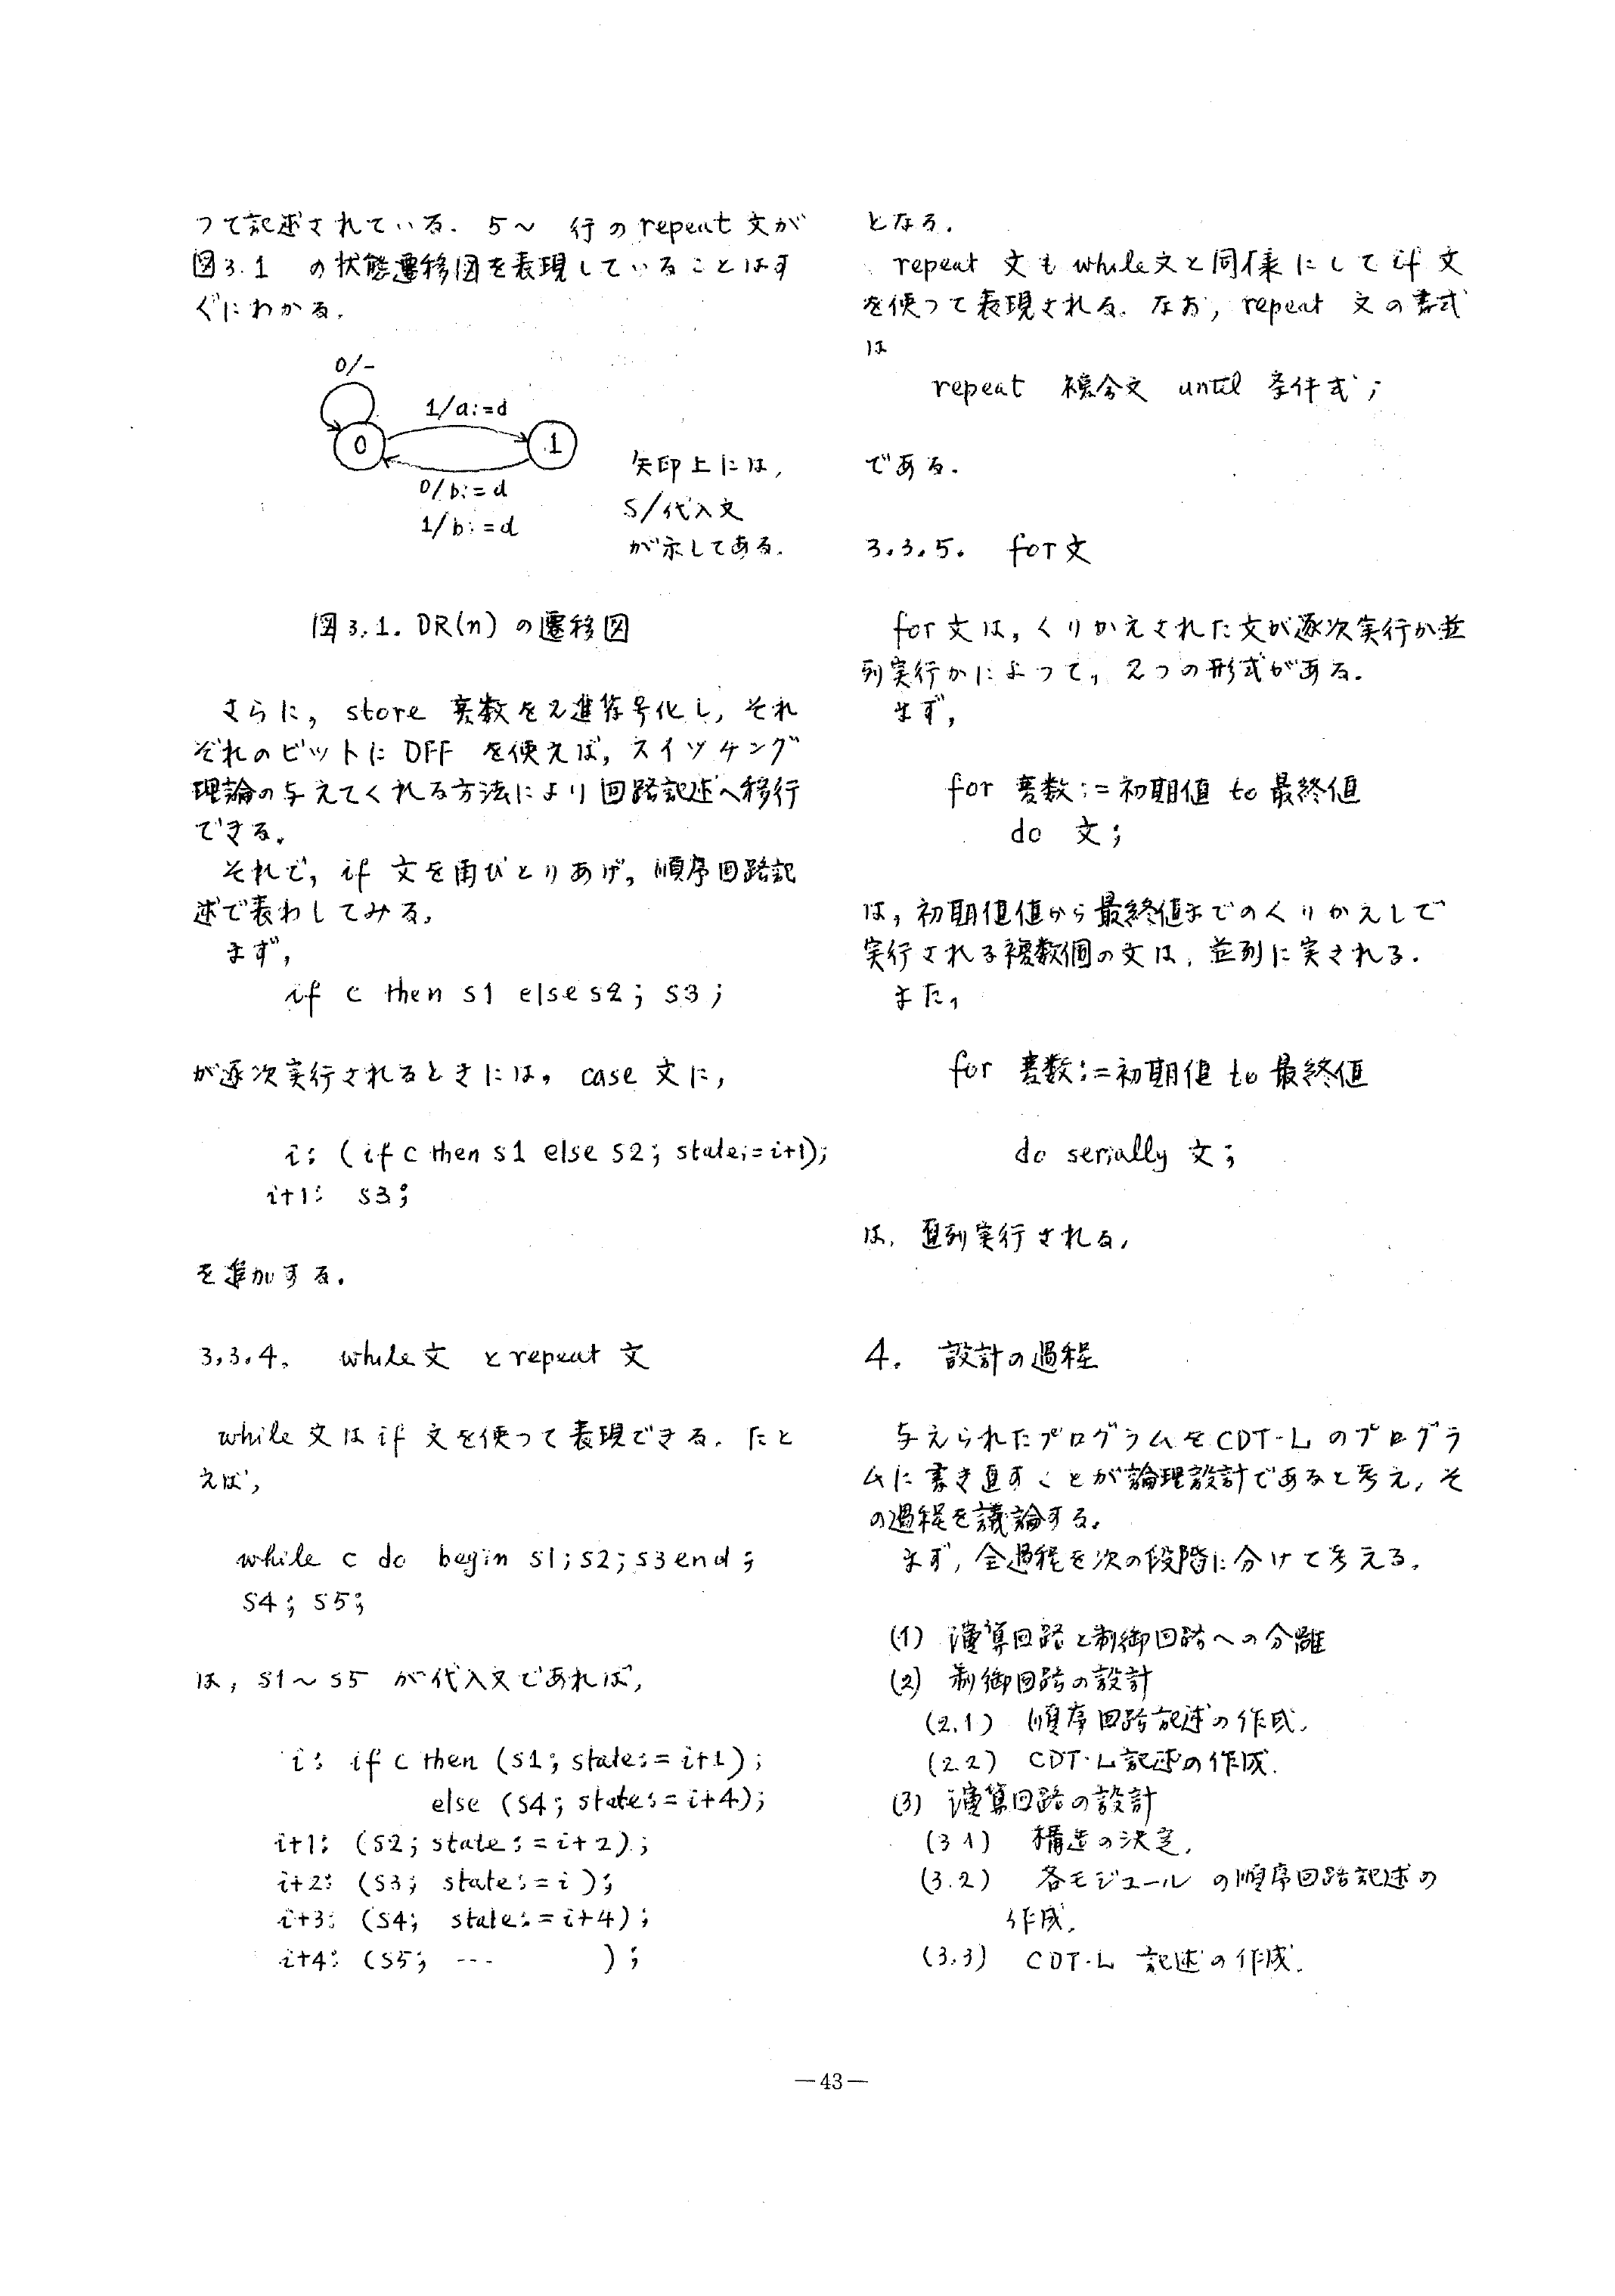 って記述されている. 5〜 行のrepeat 文が
図3.1 の状態遷移図を表現していることはす
ぐにわかる.
0/-
1/a:=d
0
1
0/b:=d
1/b:=d
矢印上には,
S/代入文
が示してある.
図3.1. DR(n) の遷移図
さらに, store 変数を2進符号化し, それ
ぞれのビットに DFF を使えば, スイッチング
理論の与えてくれる方法により回路記述へ移行
できる.
それで, if 文を再びとりあげ, 順序回路記
述で表わしてみる.
まず,
if c then s1 else s2; s3;
が逐次実行されるときには, case 文に,
i: (if c then s1 else s2; state:=i+1);
i+1: s3;
を追加する.
3.3.4. while文 とrepeat 文
while 文は if 文を使って表現できる. たと
えば,
while c do begin s1;s2;s3 end;
s4; s5;
は, s1〜s5 が代入文であれば,
i: if c then (s1; state:=i+1);
else (s4; state:=i+4);
i+1: (s2; state:=i+2);
i+2: (s3; state:=i);
i+3: (s4; state:=i+4);
i+4: (s5; --- );
となる.
repeat 文も while文と同様にして if 文
を使って表現される. なお, repeat 文の書式
は
repeat 複合文 until 条件式;
である.
3.3.5. for文
for 文は, くりかえされた文が逐次実行か並
列実行かによって, 2つの形式がある.
まず,
for 変数:=初期値 to 最終値
do 文;
は, 初期値値から最終値までのくりかえしで
実行される複数個の文は, 並列に実される.
また,
for 変数:=初期値 to 最終値
do serially 文;
は, 直列実行される.
4. 設計の過程
与えられたプログラムを CDT-L のプログラ
ムに書き直すことが論理設計であると考え, そ
の過程を議論する.
まず, 全過程を次の段階に分けて考える.
(1) 演算回路と制御回路への分離
(2) 制御回路の設計
(2.1) 順序回路記述の作成.
(2.2) CDT-L記述の作成.
(3) 演算回路の設計
(3.1) 構造の決定.
(3.2) 各モジュールの順序回路記述の
作成.
(3.3) CDT-L 記述の作成.
—43—